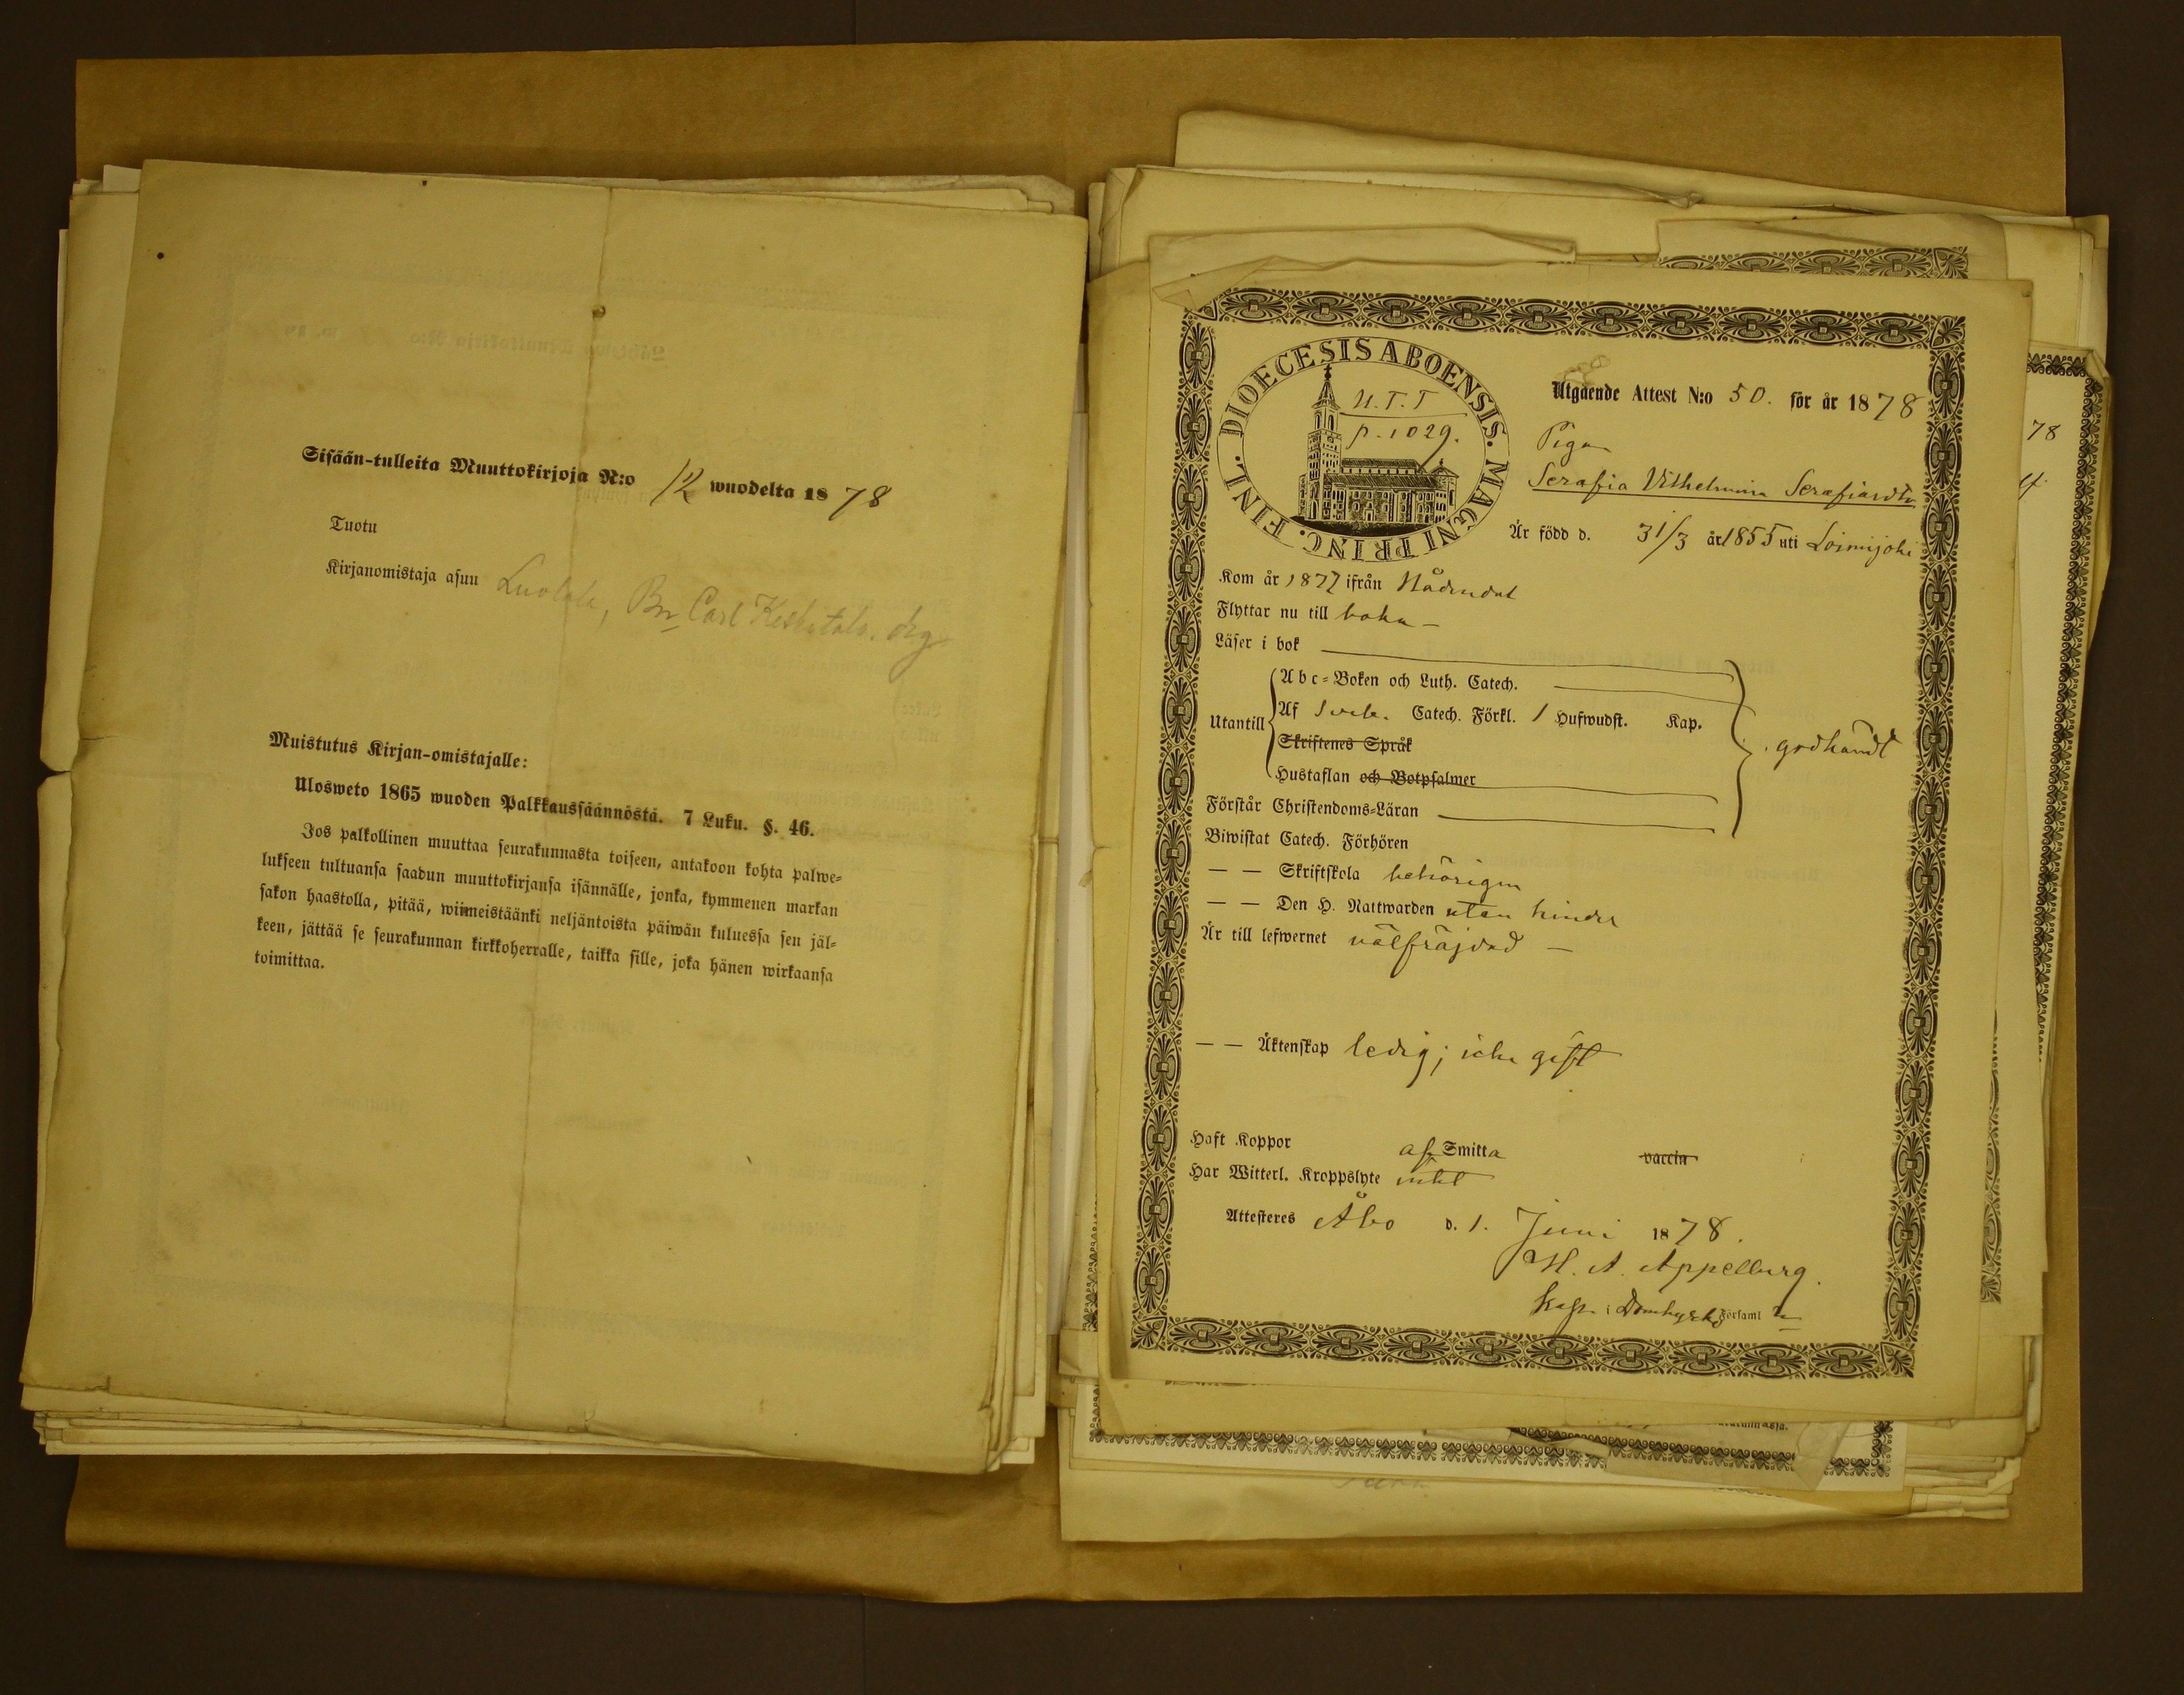 Sisään-tulleita Muuttokirjoja N:o 12 wuodelta 1878
Tuotu
Kirjanomistaja asuu Luolala, Bn Carl Keskitalo. drg
Muistutus Kirjan-omistajalle:
Ulosweto 1865 wuoden Palkkaussäännöstä. 7 Luku. §. 46.
Jos palkollinen muuttaa seurakunnasta toiseen, antakoon kohta palwe=
lukseen tultuansa saadun muuttokirjansa isännälle, jonka, kymmenen markan
sakon haastolla, pitää, wiimeistäänki neljäntoista päiwän kuluessa sen jäl=
keen, jättää se seurakunnan kirkkoherralle, taikka sille, joka hänen wirkaansa
toimittaa.
DIOECESIS ABOENSIS. MAGNI PRINC. FINL.
U.T.T
p. 1029.
Utgående Attest N:o 50. för år 1878
Pigan
Serafia Vilhelmina Serafiasdtr
Är född d. 31/3 år 1855 uti Loimijoki
Kom år 1877 ifrån Nådendal
Flyttar nu till baka –
Läser i bok
Utantill
Abc=Boken och Luth. Catech.
Af Sveb. Catech. Förkl. 1 Hufwudst. Kap.
Skriftenes Språk
Hustaflan och Botpsalmer
godkändt
Förstår Christendoms=Läran
Biwistat Catech. Förhören
— — Skriftskola behörigen
— — Den H. Nattwarden utan hinder
Är till lefwernet välfräjdad –
— — Äktenskap ledig; icke gift
Haft Koppor af Smitta vaccin
Har Witterl. Kroppslyte intet
Attesteres Åbo d. 1. Juni 1878.
H. A. Appelberg.
Kapl. i Domkyrko Församl
78